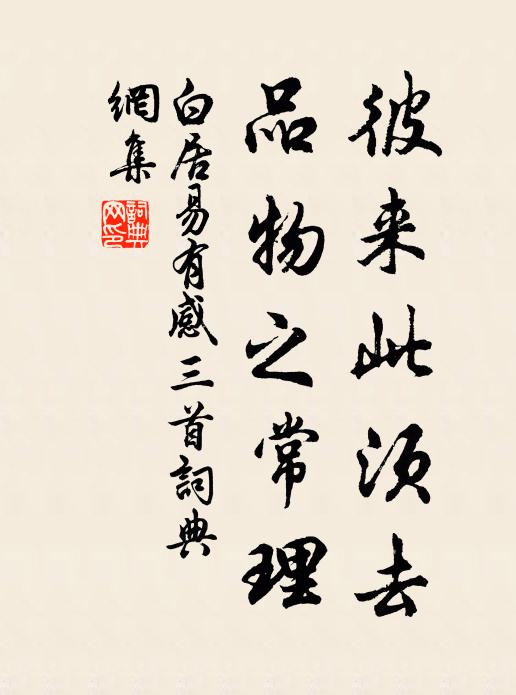 彼来此须去
品物之常理
白居易有感三首詞典
網集
詞典
网印